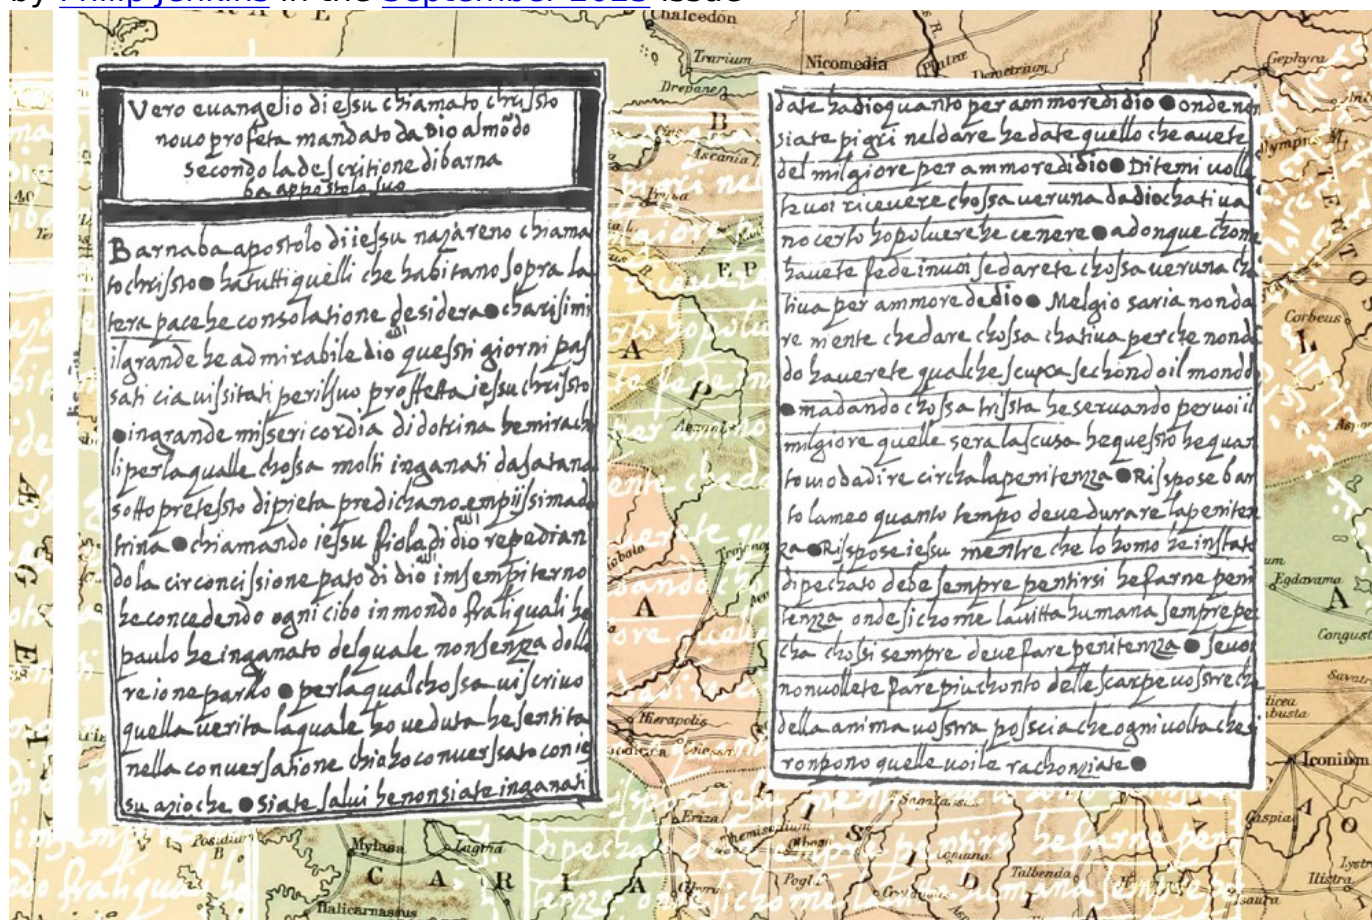 by Philip Jenkins in the September 2023 issue
Vero euangelio di essu chiamato chrissto
nouo profeta mandato da Dio almõdo
secondo la descritione di barna
ba appostolo suo
Barnaba apostolo di iessu nazareno chiama
to chrissto ha tutti quelli che habitano sopra la
tera pace he consolatione desidera charisimi
il grande he admirabile dio questi giorni pas
sati cia uissitati per il suo proffetta iessu chrissto
in grande misericordia di dotrina he mirach
li per la qualle chossa molti inganati da satana
sotto pretessto di pieta predichano empissima do
trina chiamando iessu fiolo di dio repedian
do la circoncissione pato di dio in sempiterno
he concedendo ogni cibo in mondo fra li quali he
paulo he inganato del quale non senza dollo
re ione parllo per la qual chossa ui scriuo
quella uerita la quale ho ueduta he sentita
nella conuersatione chio ho conuersato con ie
su acioche siate salui he non siate inganati
date ha dio quanto per ammore di dio onde non
siate pigri nel dare he date quello che auete
del milgiore per ammore di dio Ditemi uolle
te uoi riceuere chossa ueruna da dio chatiua
no certo ho poluere he cenere adonque chome
hauete fede in uoi se darete chossa ueruna cha
tiua per ammore de dio Melgio saria non da
re niente che dare chossa chatiua perche non da
do hauerete qualche scuxa sechondo il mondo
ma dando chossa trissta he seruando per uoi il
milgiore quelle sera la scusa he questo he quan
to uo da dire circha la penitenza Risspose bar
tolameo quanto tempo deue durare la peniten
za Risspose iessu mentre che lo homo he in state
di pechato debe sempre pentirsi he farne peni
tenza onde si chome la uitta humana sempre pe
cha chossi sempre deue fare penitenza se uoi
non uollete fare piu chonto delle scarpe uosstre che
della anima uosstra posscia che ogni uolta che si
ronpono quelle uoi le rachonziate
Chalcedon
Trarium
Nicomedia
Demetrium
Gephyra
Drepane
Ascania
Corbeus
Egdavama
Hierapolis
Iconium
Eriza
Themisodium
Talbenda
Caspia
Posidium
Mylasa
Lagina
C A R I A
Halicarnassus